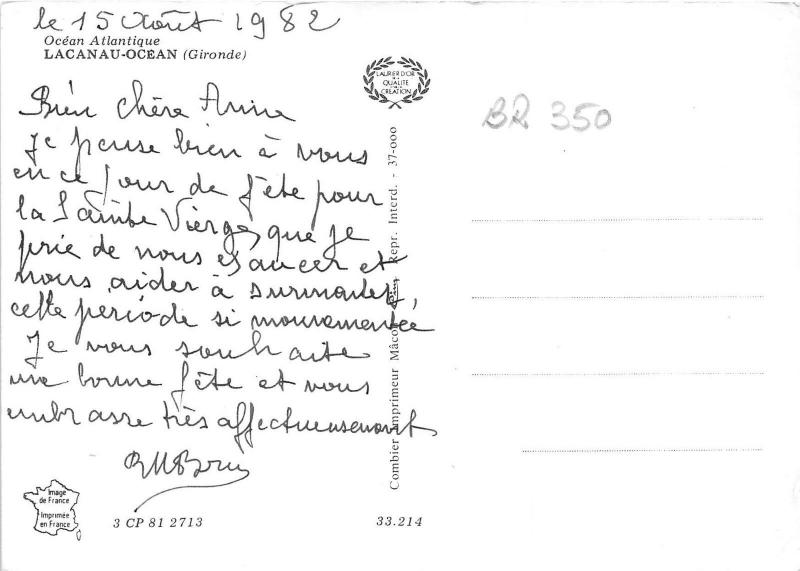 le 15 Août 1982
Océan Atlantique
LACANAU-OCÉAN (Gironde)
LAURIER D'OR
DE LA
QUALITÉ
CRÉATION
BR 350
Bien chère Anna
Je pense bien à vous
en ce jour de fête pour
la Sainte Vierge, que je
prie de nous exaucer et
nous aider à surmonter,
cette période si mouvementée
Je vous souhaite
une bonne fête et vous
embrasse très affectueusement
Combier Imprimeur Mâcon Repr. Interd. - 37-000
Image
de France
Imprimée
en France
3 CP 81 2713
33.214